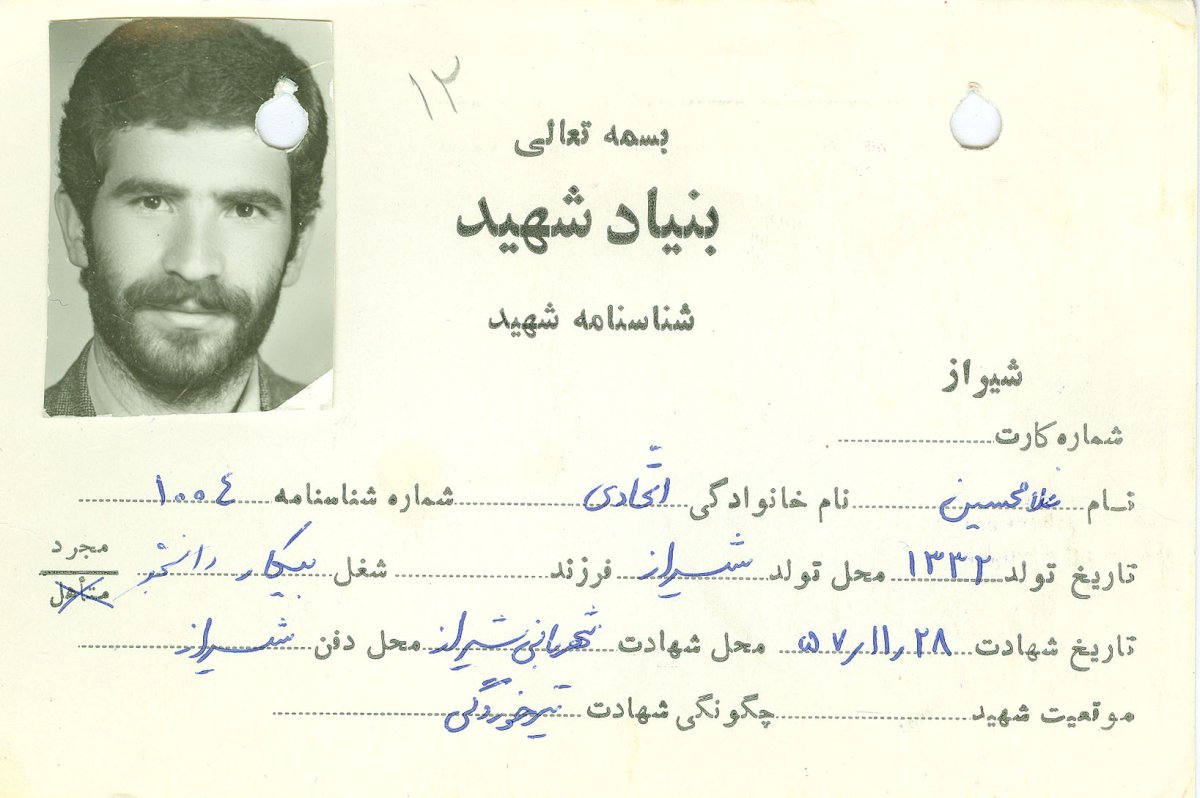 ۱۲
بسمه تعالی
بنیاد شهید
شناسنامه شهید
شیراز
شماره کارت
نام غلامحسین نام خانوادگی اتحادی شماره شناسنامه ۱۰۰٤
تاریخ تولد ۱۳۳۲ محل تولد شیراز فرزند شغل بیکار دانشجو مجرد متأهل
تاریخ شهادت ۵۷/۱۱/۲۸ محل شهادت شهربانی شیراز محل دفن شیراز
موقعیت شهید چگونگی شهادت تیرخوردگی